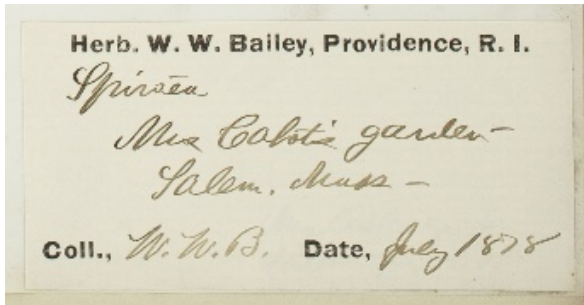 Herb. W. W. Bailey, Providence, R. I.
Spiraea
Mrs Cabot's garden -
Salem. Mass -
Coll., W. W. B. Date, July 1878